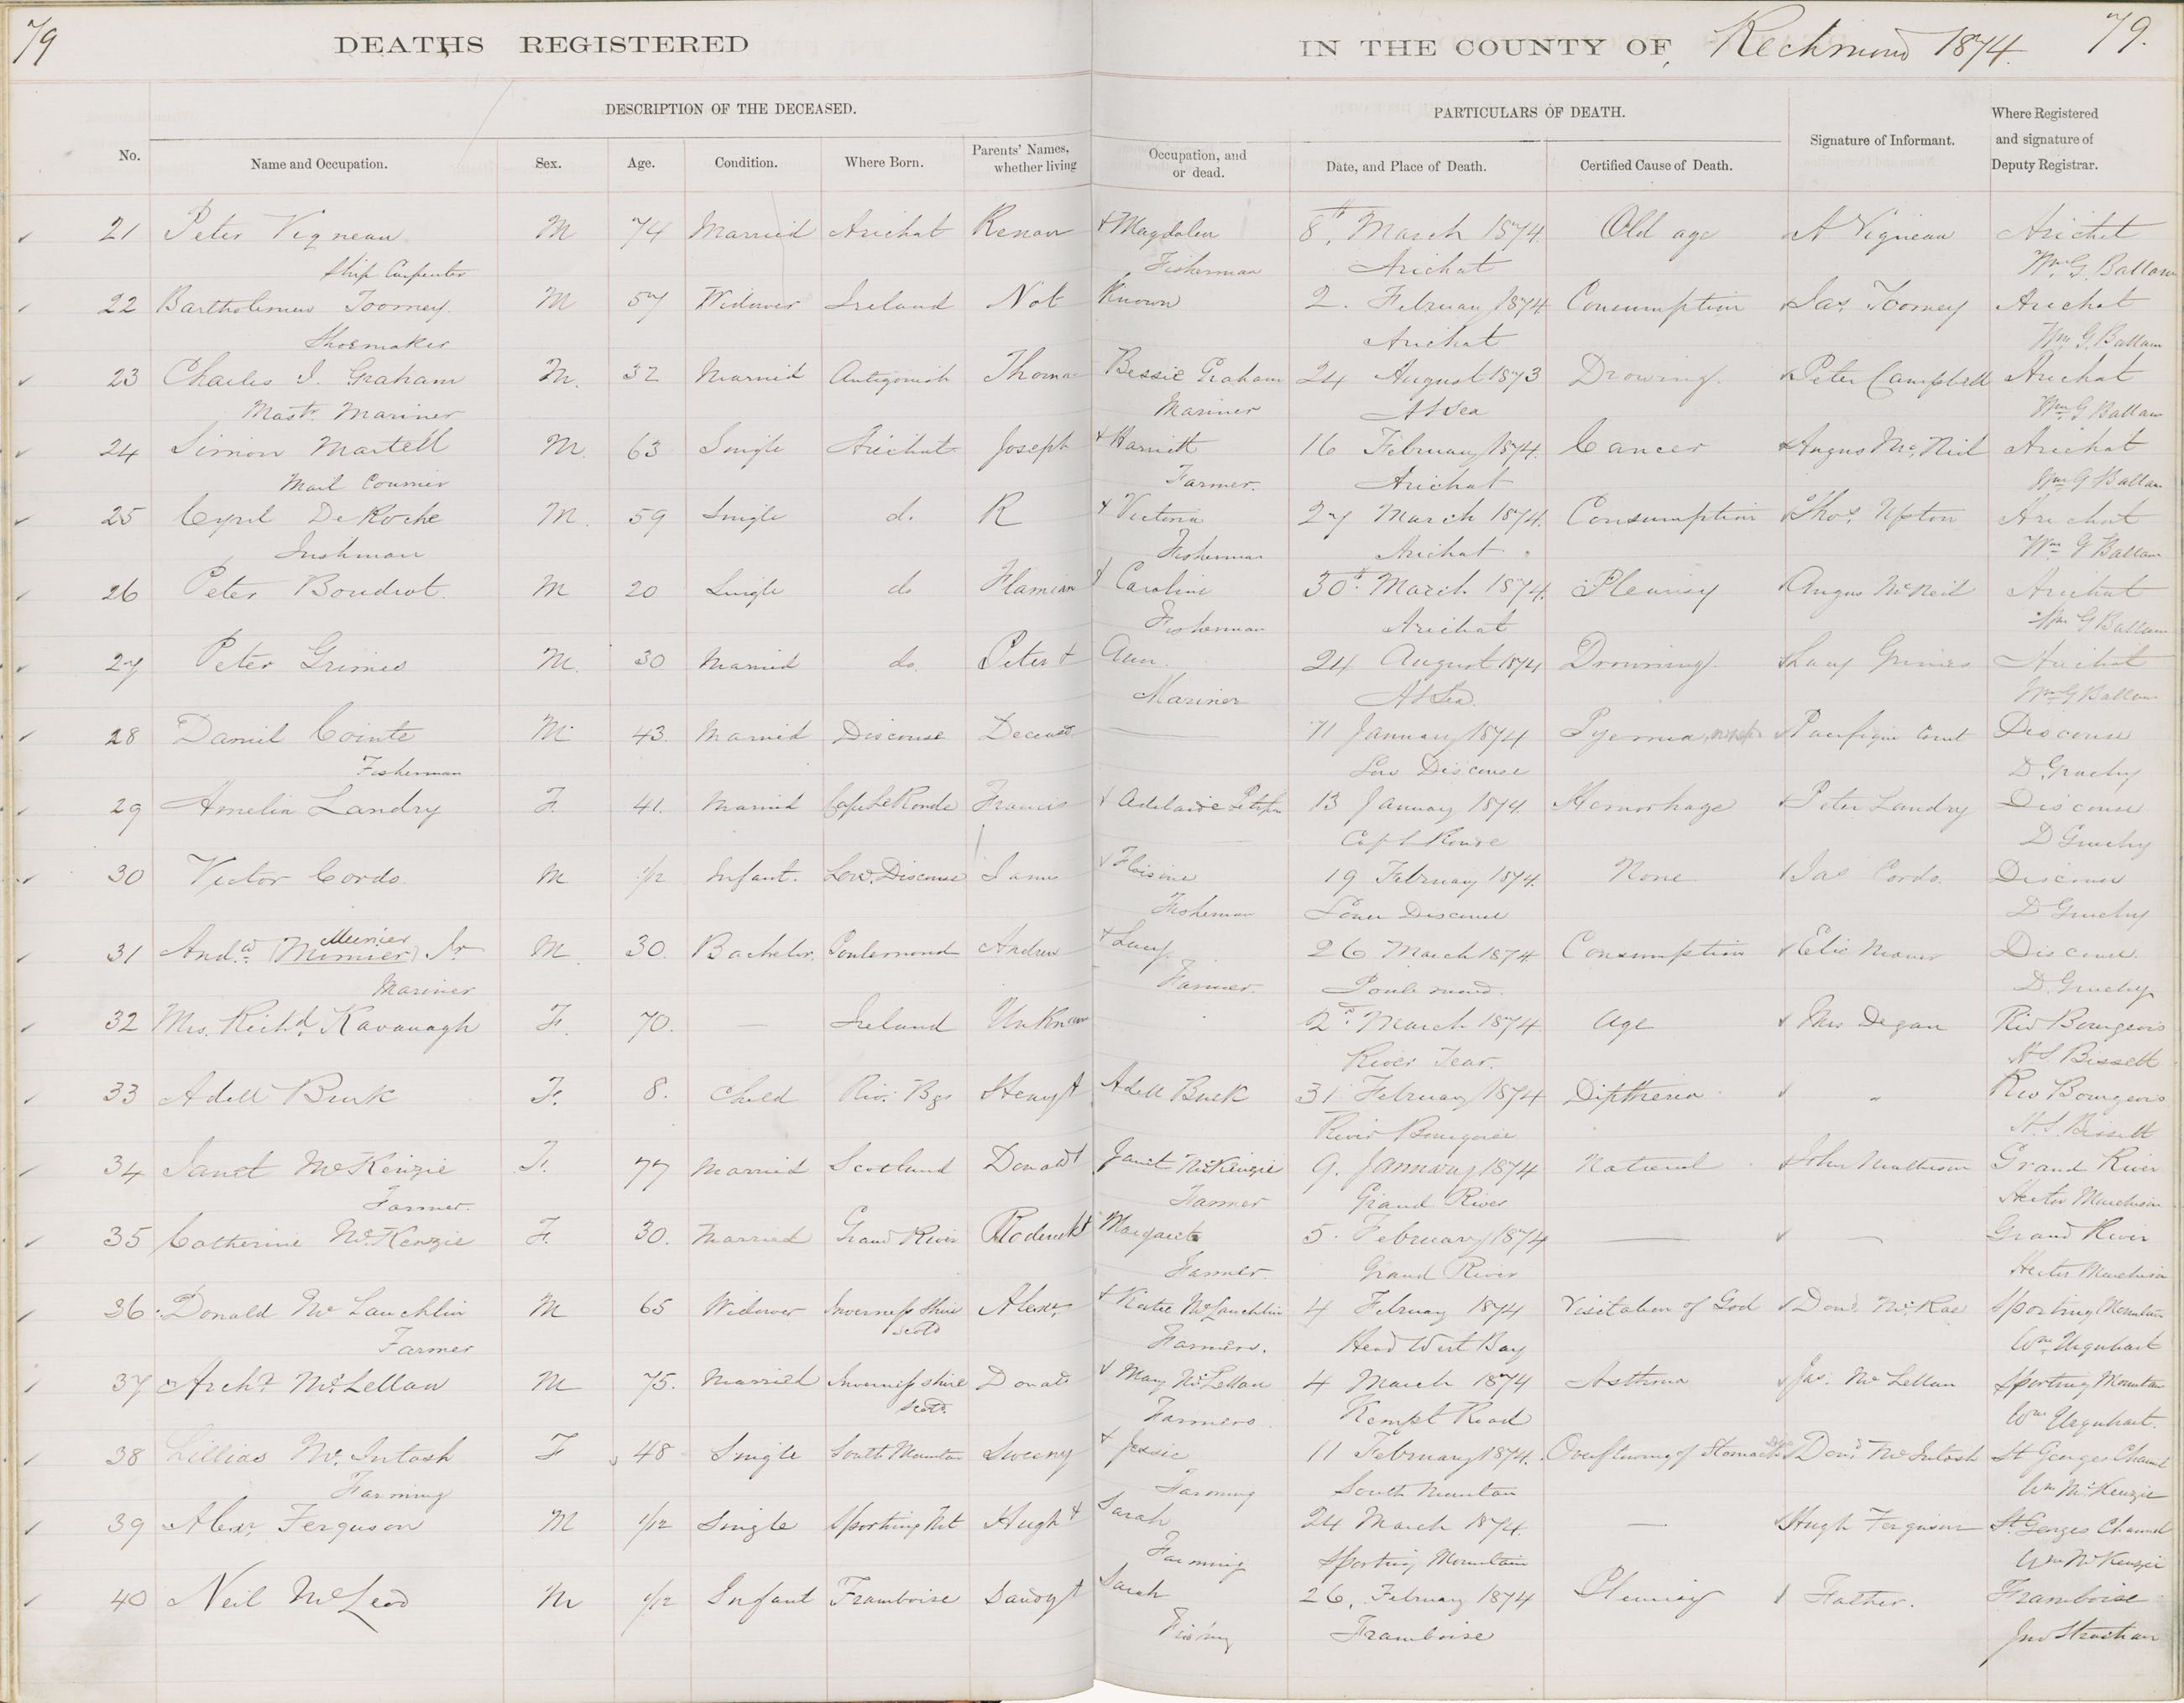 79
DEATHS REGISTERED
IN THE COUNTY OF, Richmond 1874.
79.
DESCRIPTION OF THE DECEASED.
PARTICULARS OF DEATH.
Where Registered and signature of Deputy Registrar.
No. Name and Occupation. Sex. Age. Condition. Where Born. Parents' Names, whether living Occupation, and or dead. Date, and Place of Death. Certified Cause of Death. Signature of Informant.
21 Peter Vigneau M 74 Married Arichat + Magdalen 8th March 1874 Old age A Vigneau Arichat
Ship Carpenter Fisherman Arichat Wm G. Ballam
22 Bartholemew Toomey. M 57 Widower Ireland Not Known 2. February 1874 Consumption Jas. Toomey Arichat
Shoemaker Arichat Wm G Ballam
23 Charles J. Graham M. 32 Married Antigonish Thomas Bessie Graham 24 August 1873 Drowning. Peter Campbell Arichat
Mastr. Mariner Mariner At Sea Wm G Ballam
24 Simon Martell M. 63 Single Arichat Joseph + Harriett 16 February 1874. Cancer Angus McNeil Arichat
Mail Courrier Farmer. Arichat Wm G Ballam
25 Cyril DeRoche M. 59 Single do. R + Victoria 27 March 1874. Consumption Thos. Upton Arichat
Fisherman Arichat Wm G Ballam
26 Peter Boudrot. M 20 Single do Flamian + Caroline 30th March 1874. Pleurisy Angus McNeil Arichat
Fisherman Arichat Wm G Ballam
27 Peter Grimes M. 30 Married do. Peter + Ann. 24 August 1874 Drowning. Grimes Arichat
Mariner At Sea. Wm G Ballam
28 Daniel Cointe M. 43. Married Discouse Deceasd 11 January 1874 Pyemia, Discouse
Fisherman Low Discouse D. Gruchy
29 Amelia Landry F. 41. Married Cape LeRonde Francis + Adelaide 13 January 1874. Hemorhage Peter Landry Discouse
D Gruchy
30 Victor Cordo M 1/12 Infant. Low. Discouse James + Floisine 19 February 1874. None Jas Cordo. Discouse
Fisherman Lower Discouse D Gruchy
Meunier
31 Andw. (Monnier) Jr M. 30. Bachelor. Poulamond Andrew + Lucy. 26 March 1874 Consumption Elie Discouse.
Mariner Farmer. D. Gruchy
32 Mrs. Richd. Kavanagh F. 70. — Ireland Unknown 2d. March 1874 Age Degan Riv Bourgeois
River Tear. Bissett
33 Adell Burk F. 8. Child Riv. Bgs Henry + Adell Burk 31 February 1874 Diptheria " Riv Bourgeois
River Bourgeois Bissett
34 Janet McKenzie F. 77 Married Scotland Donald + Janet McKenzie 9. January 1874 Natural John Grand River
Farmer. Farmer Grand River Hector Murchison
35 Catherine McKenzie F. 30. Married Grand River Roderick + Margaret 5. February 1874 — — Grand River
Farmer. Grand River Hector Murchison
36. Donald McLauchlin M 65 Widower Inverness Shire Alexr. + Katie McLauchlin 4 February 1874 Visitation of God Dond. McRae Sporting Mountain
Farmer Scotd Farmers. Head West Bay Wm Urquhart
37 Archd. McLellan M 75. Married Inverness shire Donald + Mary McLellan 4 March 1874 Asthma Jas. McLellan Sporting Mountain
Scotd. Farmers Kempt Road Wm Urquhart.
38 Lillias McIntosh F 48 Single South Mountan Sweeny + Jessie 11 February 1874. Overflowing of Stomach Dond McIntosh St Georges Channel
Farming Farming South Mountan Wm McKenzie
39 Alexr. Ferguson M 1/12 Single Sporting Mt Hugh + Sarah 24 March 1874. — Hugh Ferguson St Georges Channel
Farming Sporting Mountain Wm McKenzie
40 Neil McLeod M 1/12 Infant Framboise Sandy + Sarah 26, February 1874 Pleurisy Father. Framboise
Fishing Framboise Jno Strachan